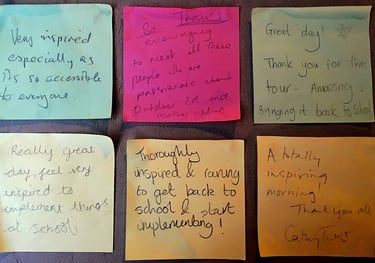 Very inspired
especially as
its so accessible
to everyone
Thanks
So encouraging
to meet all these
people who are
passionate about
Outdoor Ed and
mother nature
Great day!
Thank you for the
tour - Amazing.
Bringing it back to School
Really great
day, feel very
inspired to
implement things
at school.
Thoroughly
inspired & raring
to get back to
school & start
implementing!
A totally
inspiring
morning!
Thank you all
Cathy